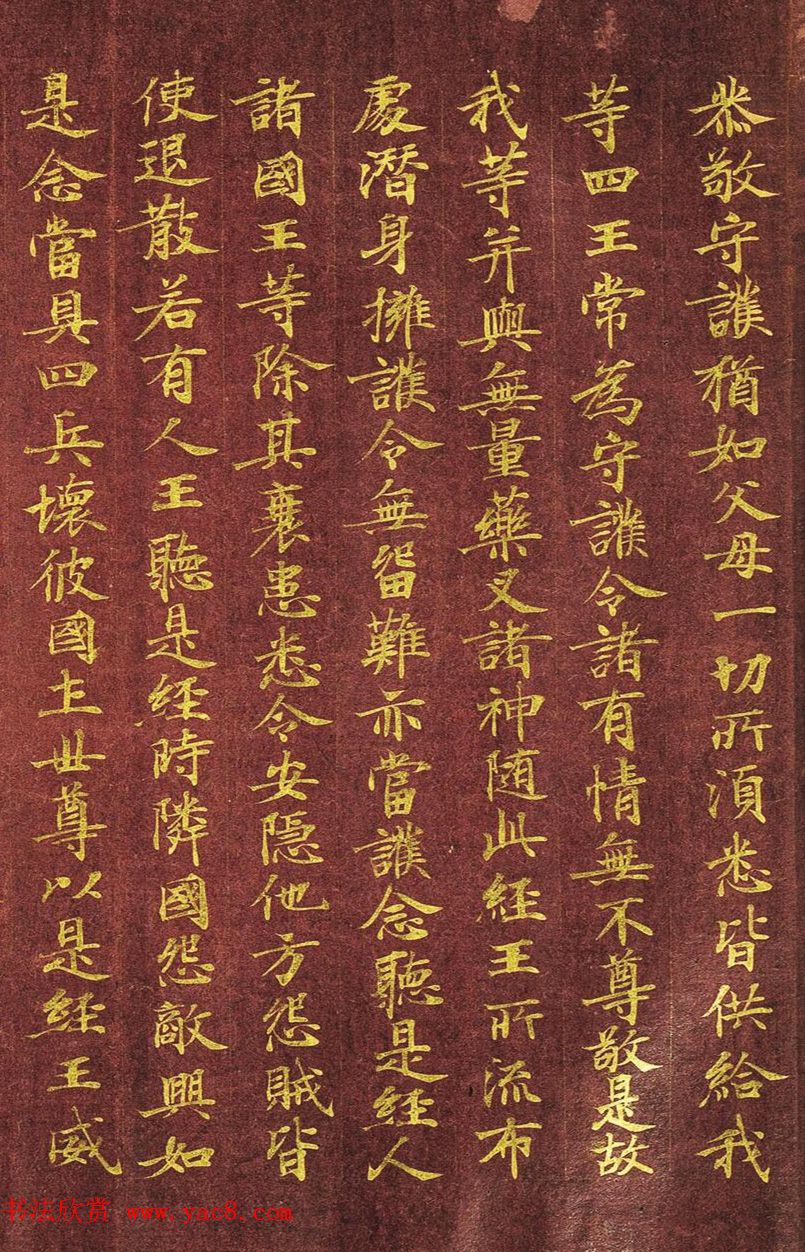 恭敬守護猶如父母一切所須悉皆供給我
等四王常為守護令諸有情無不尊敬是故
我等并與無量藥叉諸神隨此經王所流布
處潛身擁護令無留難亦當護念聽是經人
諸國王等除其衰患悉令安隱他方怨賊皆
使退散若有人王聽是經時隣國怨敵興如
是念當具四兵壞彼國土世尊以是經王威
书法欣赏 www.yac8.com